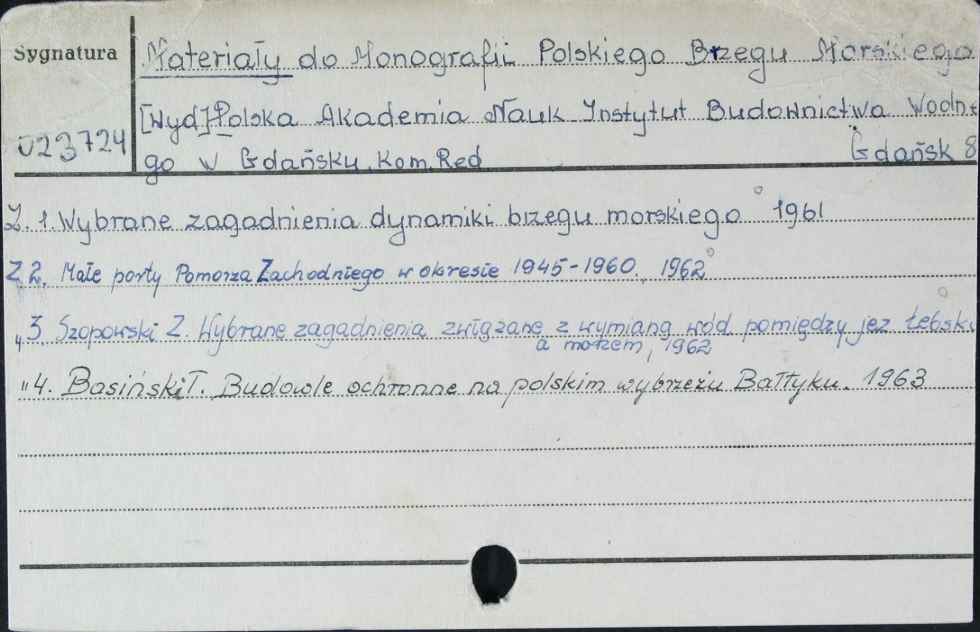 Sygnatura
Materiały do Monografii Polskiego Brzegu Morskiego
023724
[Wyd] Polska Akademia Nauk Instytut Budownictwa Wodne
go w Gdańsku. Kom. Red Gdańsk 8
Z. 1. Wybrane zagadnienia dynamiki brzegu morskiego 1961
Z 2. Małe porty Pomorza Zachodniego w okresie 1945-1960. 1962
" 3. Szopowski Z. Wybrane zagadnienia związane z wymianą wód pomiędzy jez. Łebski
a morzem, 1962
" 4. Basiński T. Budowle ochronne na polskim wybrzeżu Bałtyku. 1963